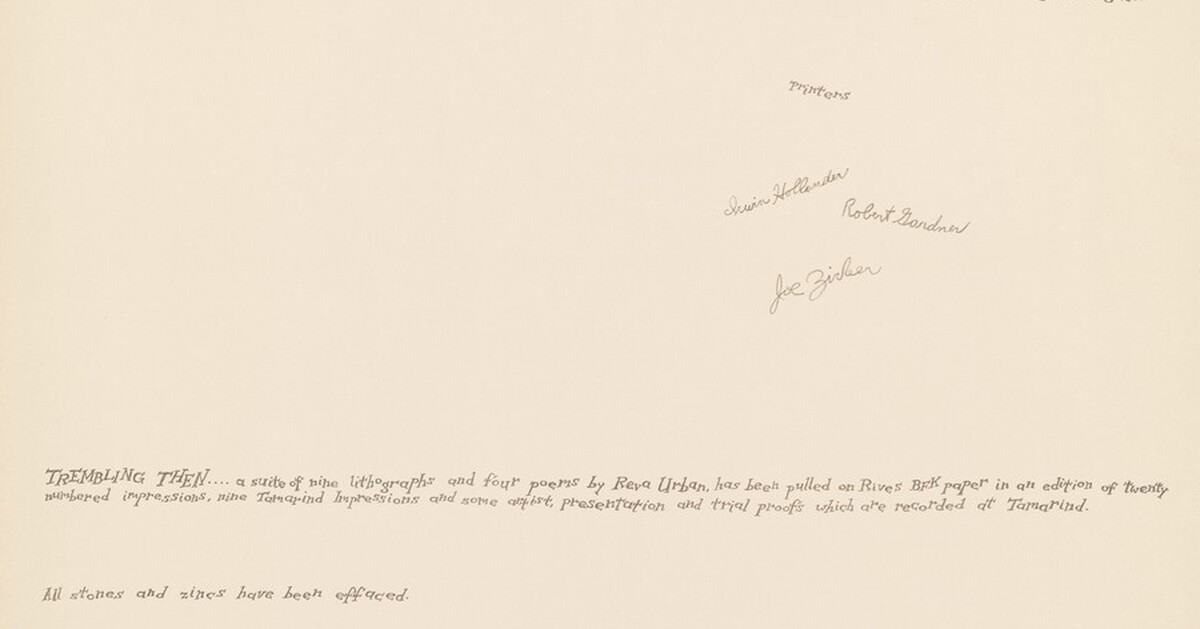 Printers
Irwin Hollander
Robert Gardner
Joe Zirker
TREMBLING THEN.... a suite of nine lithographs and four poems by Reva Urban, has been pulled on Rives BFK paper in an edition of twenty
numbered impressions, nine Tamarind Impressions and some artist, presentation and trial proofs which are recorded at Tamarind.
All stones and zincs have been effaced.